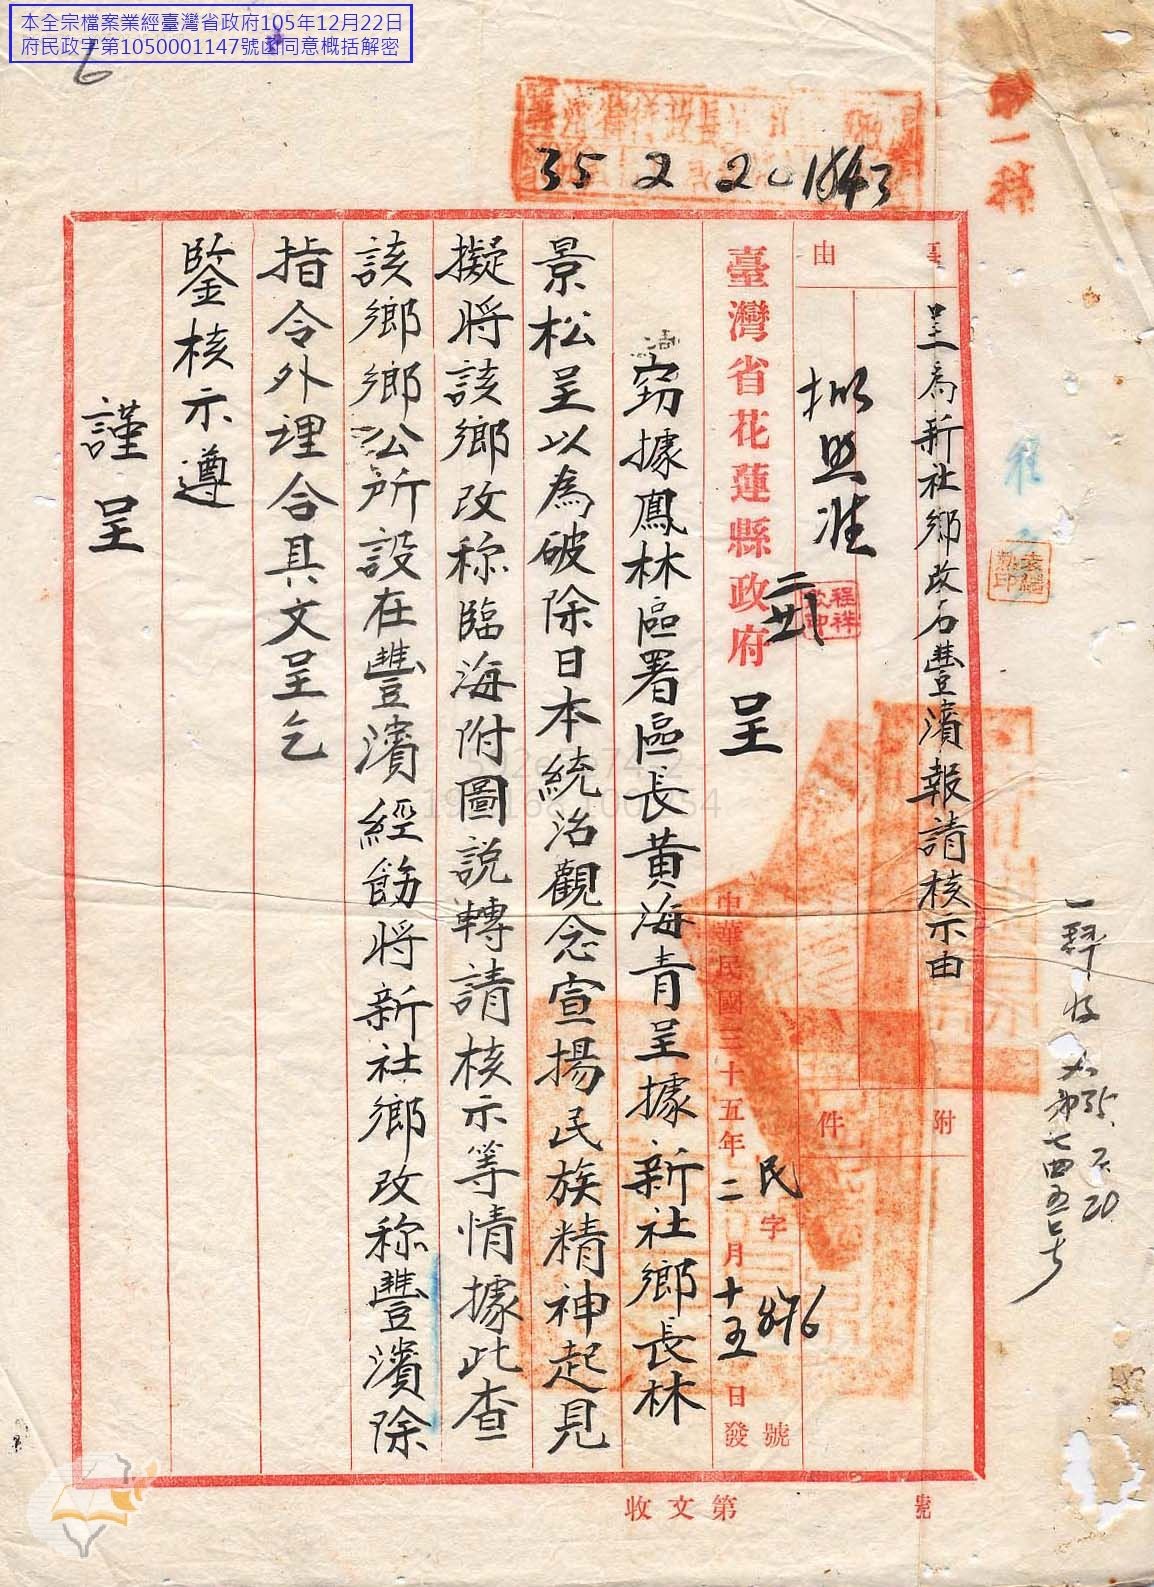 本全宗檔案業經臺灣省政府105年12月22日
府民政字第1050001147號函同意概括解密
6
35 2 20 1843
第一科
事由
呈為新社鄉改名豐濱報請核示由
附件
擬照准
二廿一
臺灣省花蓮縣政府 呈
中華民國三十五年二月十五日發
民字 876 號
竊據鳳林區署區長黃海青呈據新社鄉長林
景松呈以為破除日本統治觀念宣揚民族精神起見
擬将該鄉改称臨海附圖説轉請核示等情據此查
該鄉鄉公所設在豐濱經飭将新社鄉改称豐濱除
指令外理合具文呈乞
鑒核示遵
謹呈
一科收文35.2.20
第七四五号
收文第 號